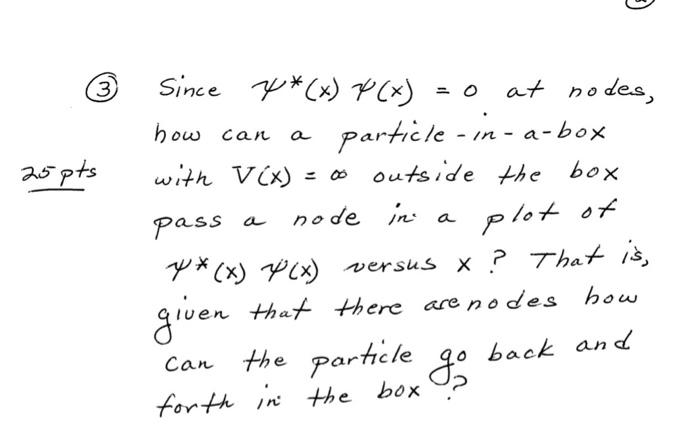 ③ Since ψ*(x) ψ(x) = 0 at nodes,
how can a particle-in-a-box
25 pts with V(x) = ∞ outside the box
pass a node in a plot of
ψ*(x) ψ(x) versus x? That is,
given that there are nodes how
can the particle go back and
forth in the box?